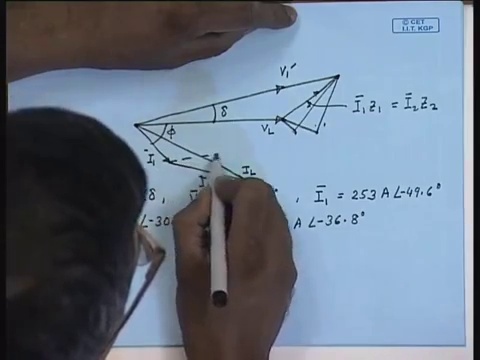 © CET
I.I.T. KGP
V₁′
δ
Ī₁Z₁ = Ī₂Z₂
V_L
φ
Ī₁
I_L
8, Ī₁ = 253 A∠-49.6°
∠-30 A∠-36.8°